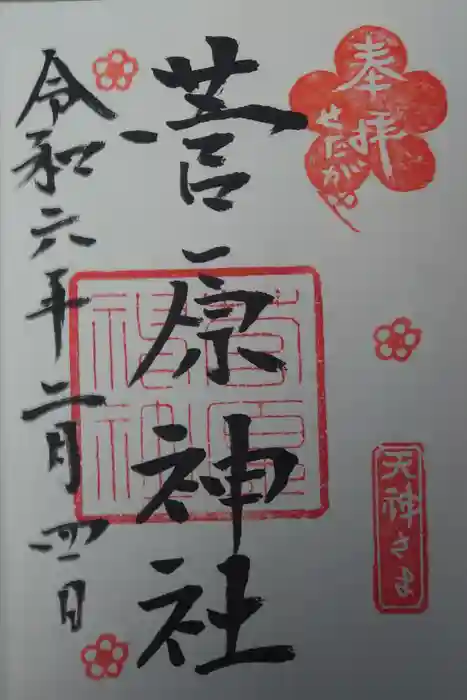 奉拝
せたがや
天神さま
菅原神社
菅原神社
令和六年二月四日